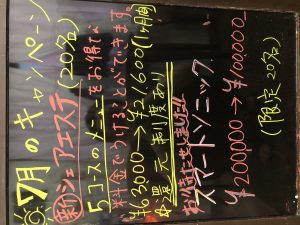 7月のキャンペーン
新シェアエステ(20名)
5コースのメニューをお得な
料金でうけることができます。
¥63000→¥21600(1ヶ月間)
還元制度あり
お待たせしました!!
スマートソニック
¥200000→¥100000
(限定20名)